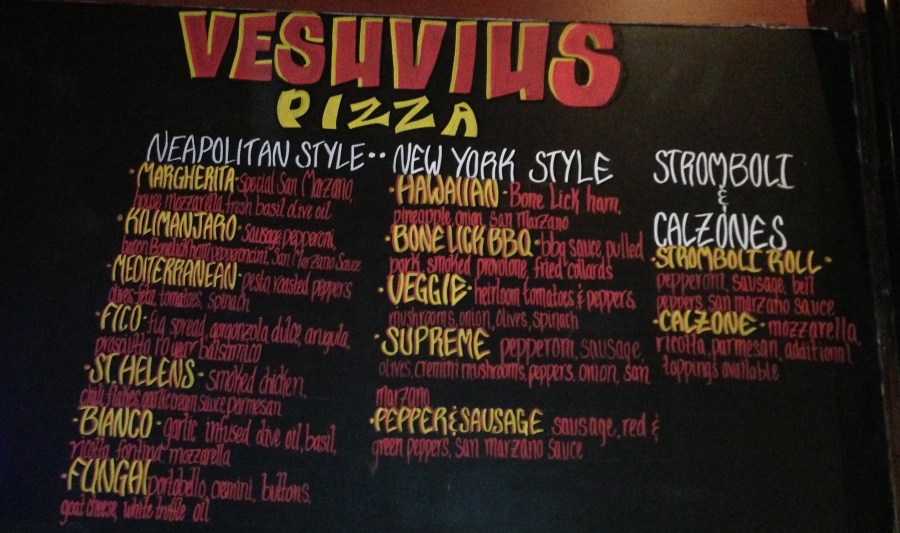 VESUVIUS
PIZZA
NEAPOLITAN STYLE··
·MARGHERITA·special San Marzano,
house mozzarella fresh basil olive oil
·KILIMANJARO·sausage pepperoni,
bacon Bonelick ham pepperoncini, San Marzano Sauce
·MEDITERRANEAN·pesto roasted peppers
olives feta, tomatoes, spinach
·FICO·fig spread, gorgonzola dulce, arugula,
prosciutto 10 year balsamico
·ST.HELENS·smoked chicken,
chili flakes garlic cream sauce parmesan
·BIANCO·garlic infused olive oil, basil,
ricotta, fontina mozzarella
·FUNGAI portobello, cremini, buttons,
goat cheese, white truffle oil
NEW YORK STYLE
·HAWAIIAN·Bone Lick ham,
pineapple, onion, san marzano
·BONE LICK BBQ·bbq sauce, pulled
pork, smoked provolone, fried collards
·VEGGIE·heirloom tomatoes & peppers
mushrooms, onion, olives, spinach
·SUPREME pepperoni, sausage,
olives, cremini mushrooms, peppers, onion, san
marzano
·PEPPER&SAUSAGE sausage, red &
green peppers, san marzano sauce
STROMBOLI
&
CALZONES
·STROMBOLI ROLL·
pepperoni, sausage, bell
peppers, san marzano sauce
·CALZONE·mozzarella,
ricotta, parmesan, additional
toppings available